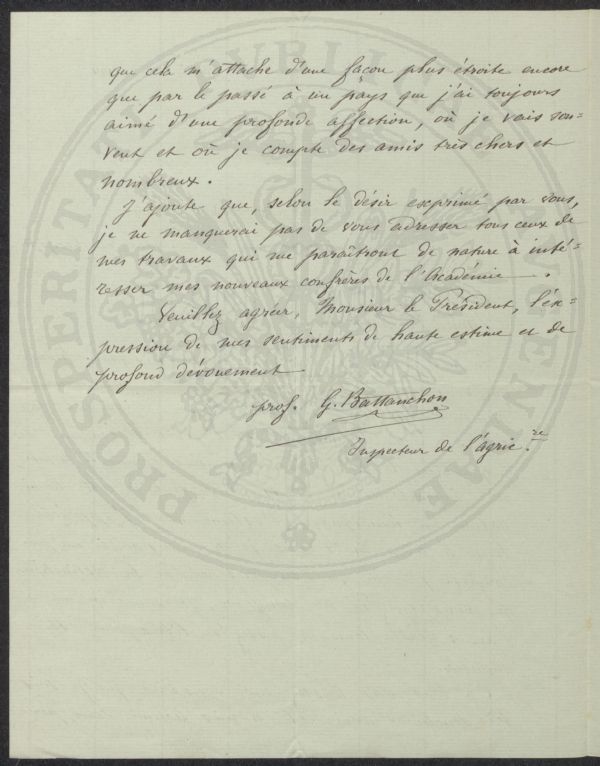 que cela m'attache d'une façon plus étroite encore
que par le passé à un pays que j'ai toujours
aimé d'une profonde affection, où je vais sou=
vent et où je compte des amis très chers et
nombreux.
J'ajoute que, selon le désir exprimé par vous,
je ne manquerai pas de vous adresser tous ceux de
mes travaux qui me paraîtront de nature à inté=
resser mes nouveaux confrères de l'Académie.
Veuillez agréer, Monsieur le Président, l'ex=
pression de mes sentiments de haute estime et de
profond dévouement
prof. G. Battanchon
Inspecteur de l'agric.re
PROSPERITAS PUBLICAE